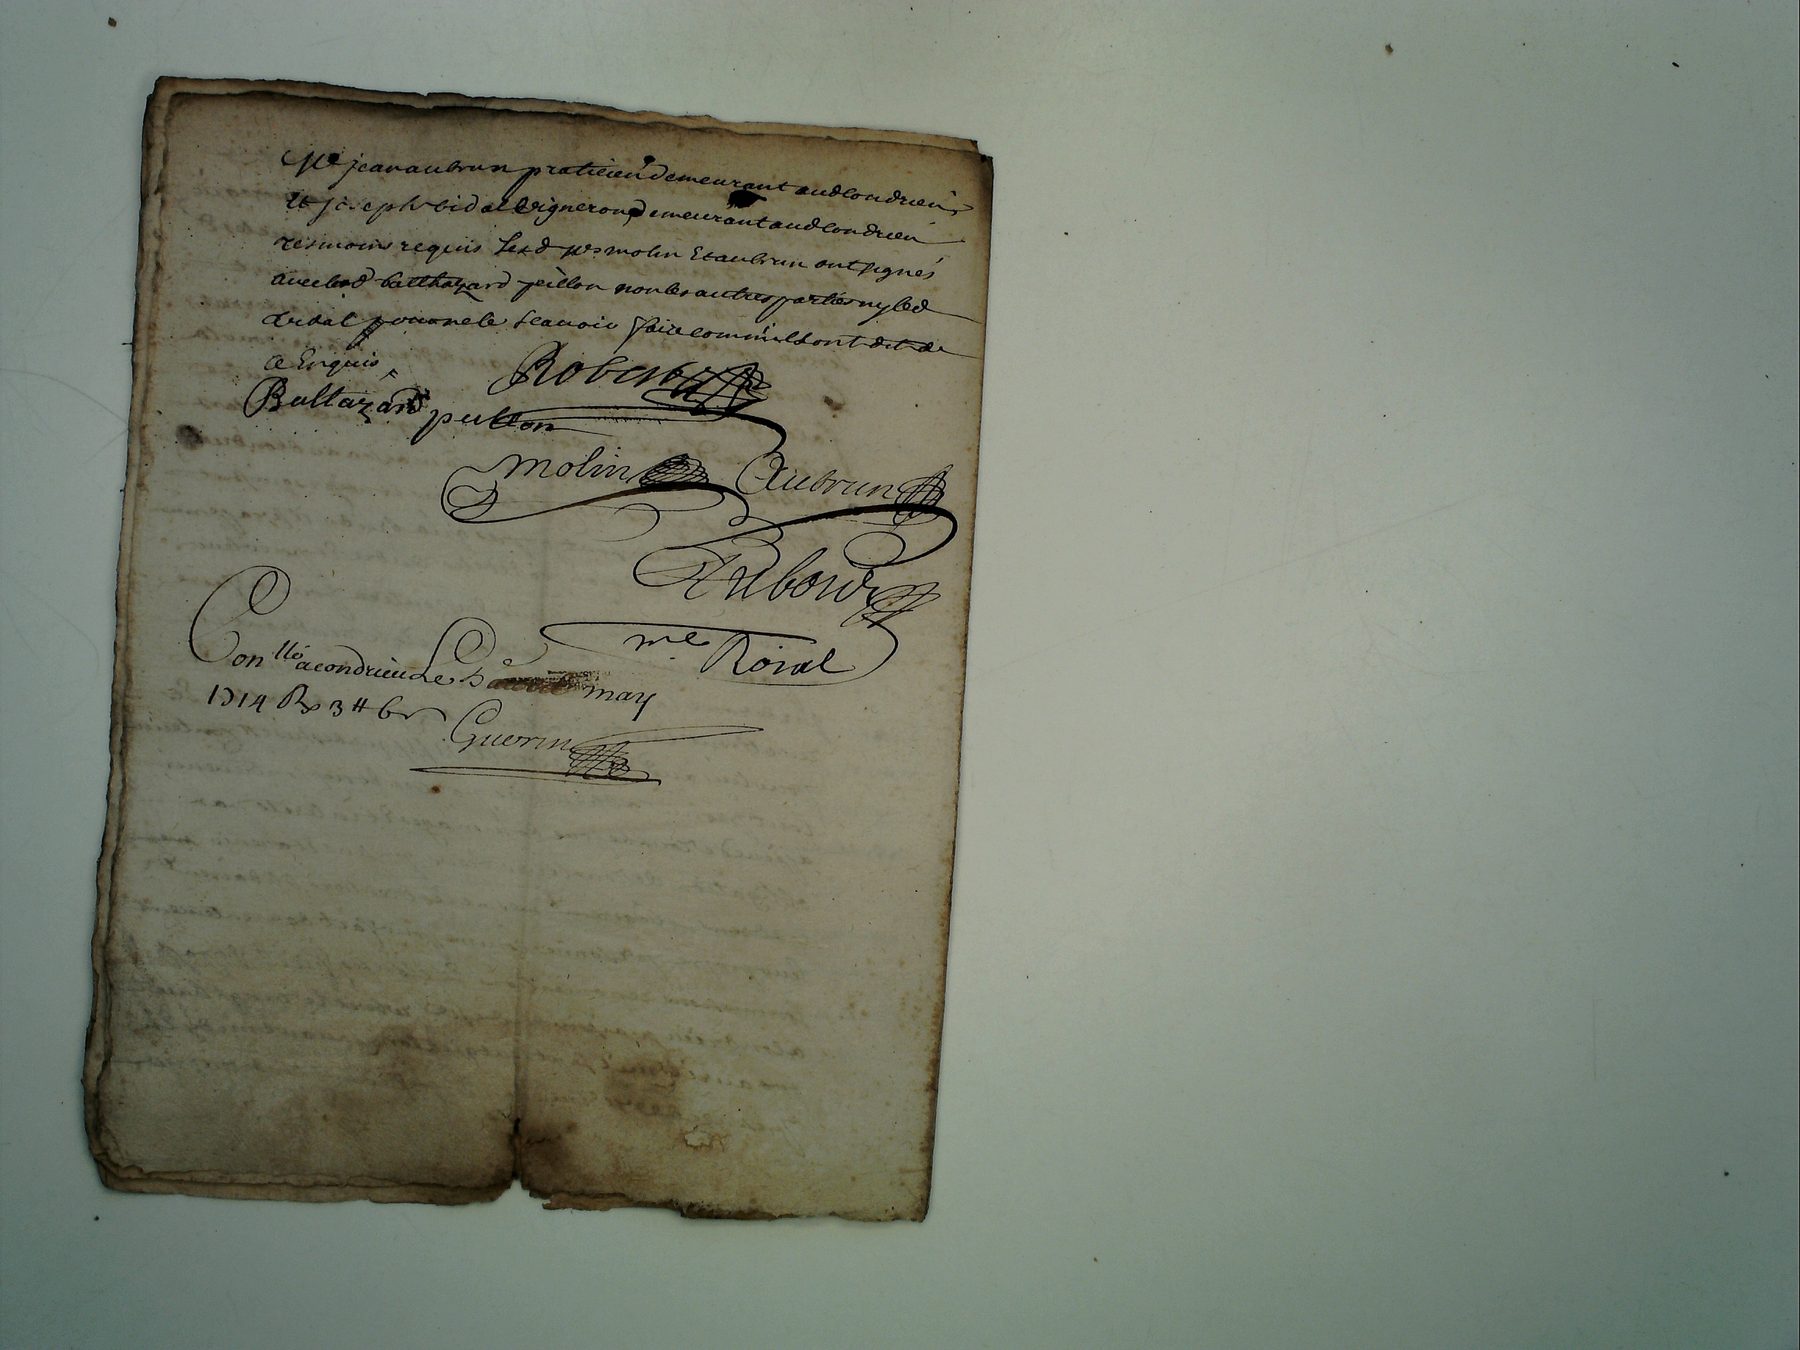 Me jean aubrun praticien demeurant aud Condrieu
et joseph vidal vigneron demeurant aud Condrieu
tesmoins requis lesd srs molin et aubrun ont signés
avec led balthazard peillon non les autres parties ny led
vidal pour ne le scavoir faire comm'ils ont dit de
ce Enquis
Robert
Baltazard peillon
molin Aubrun
Ribord
me Roial
Conllé a condrieu Le may
1714 Rx 3 # 6
Guerin